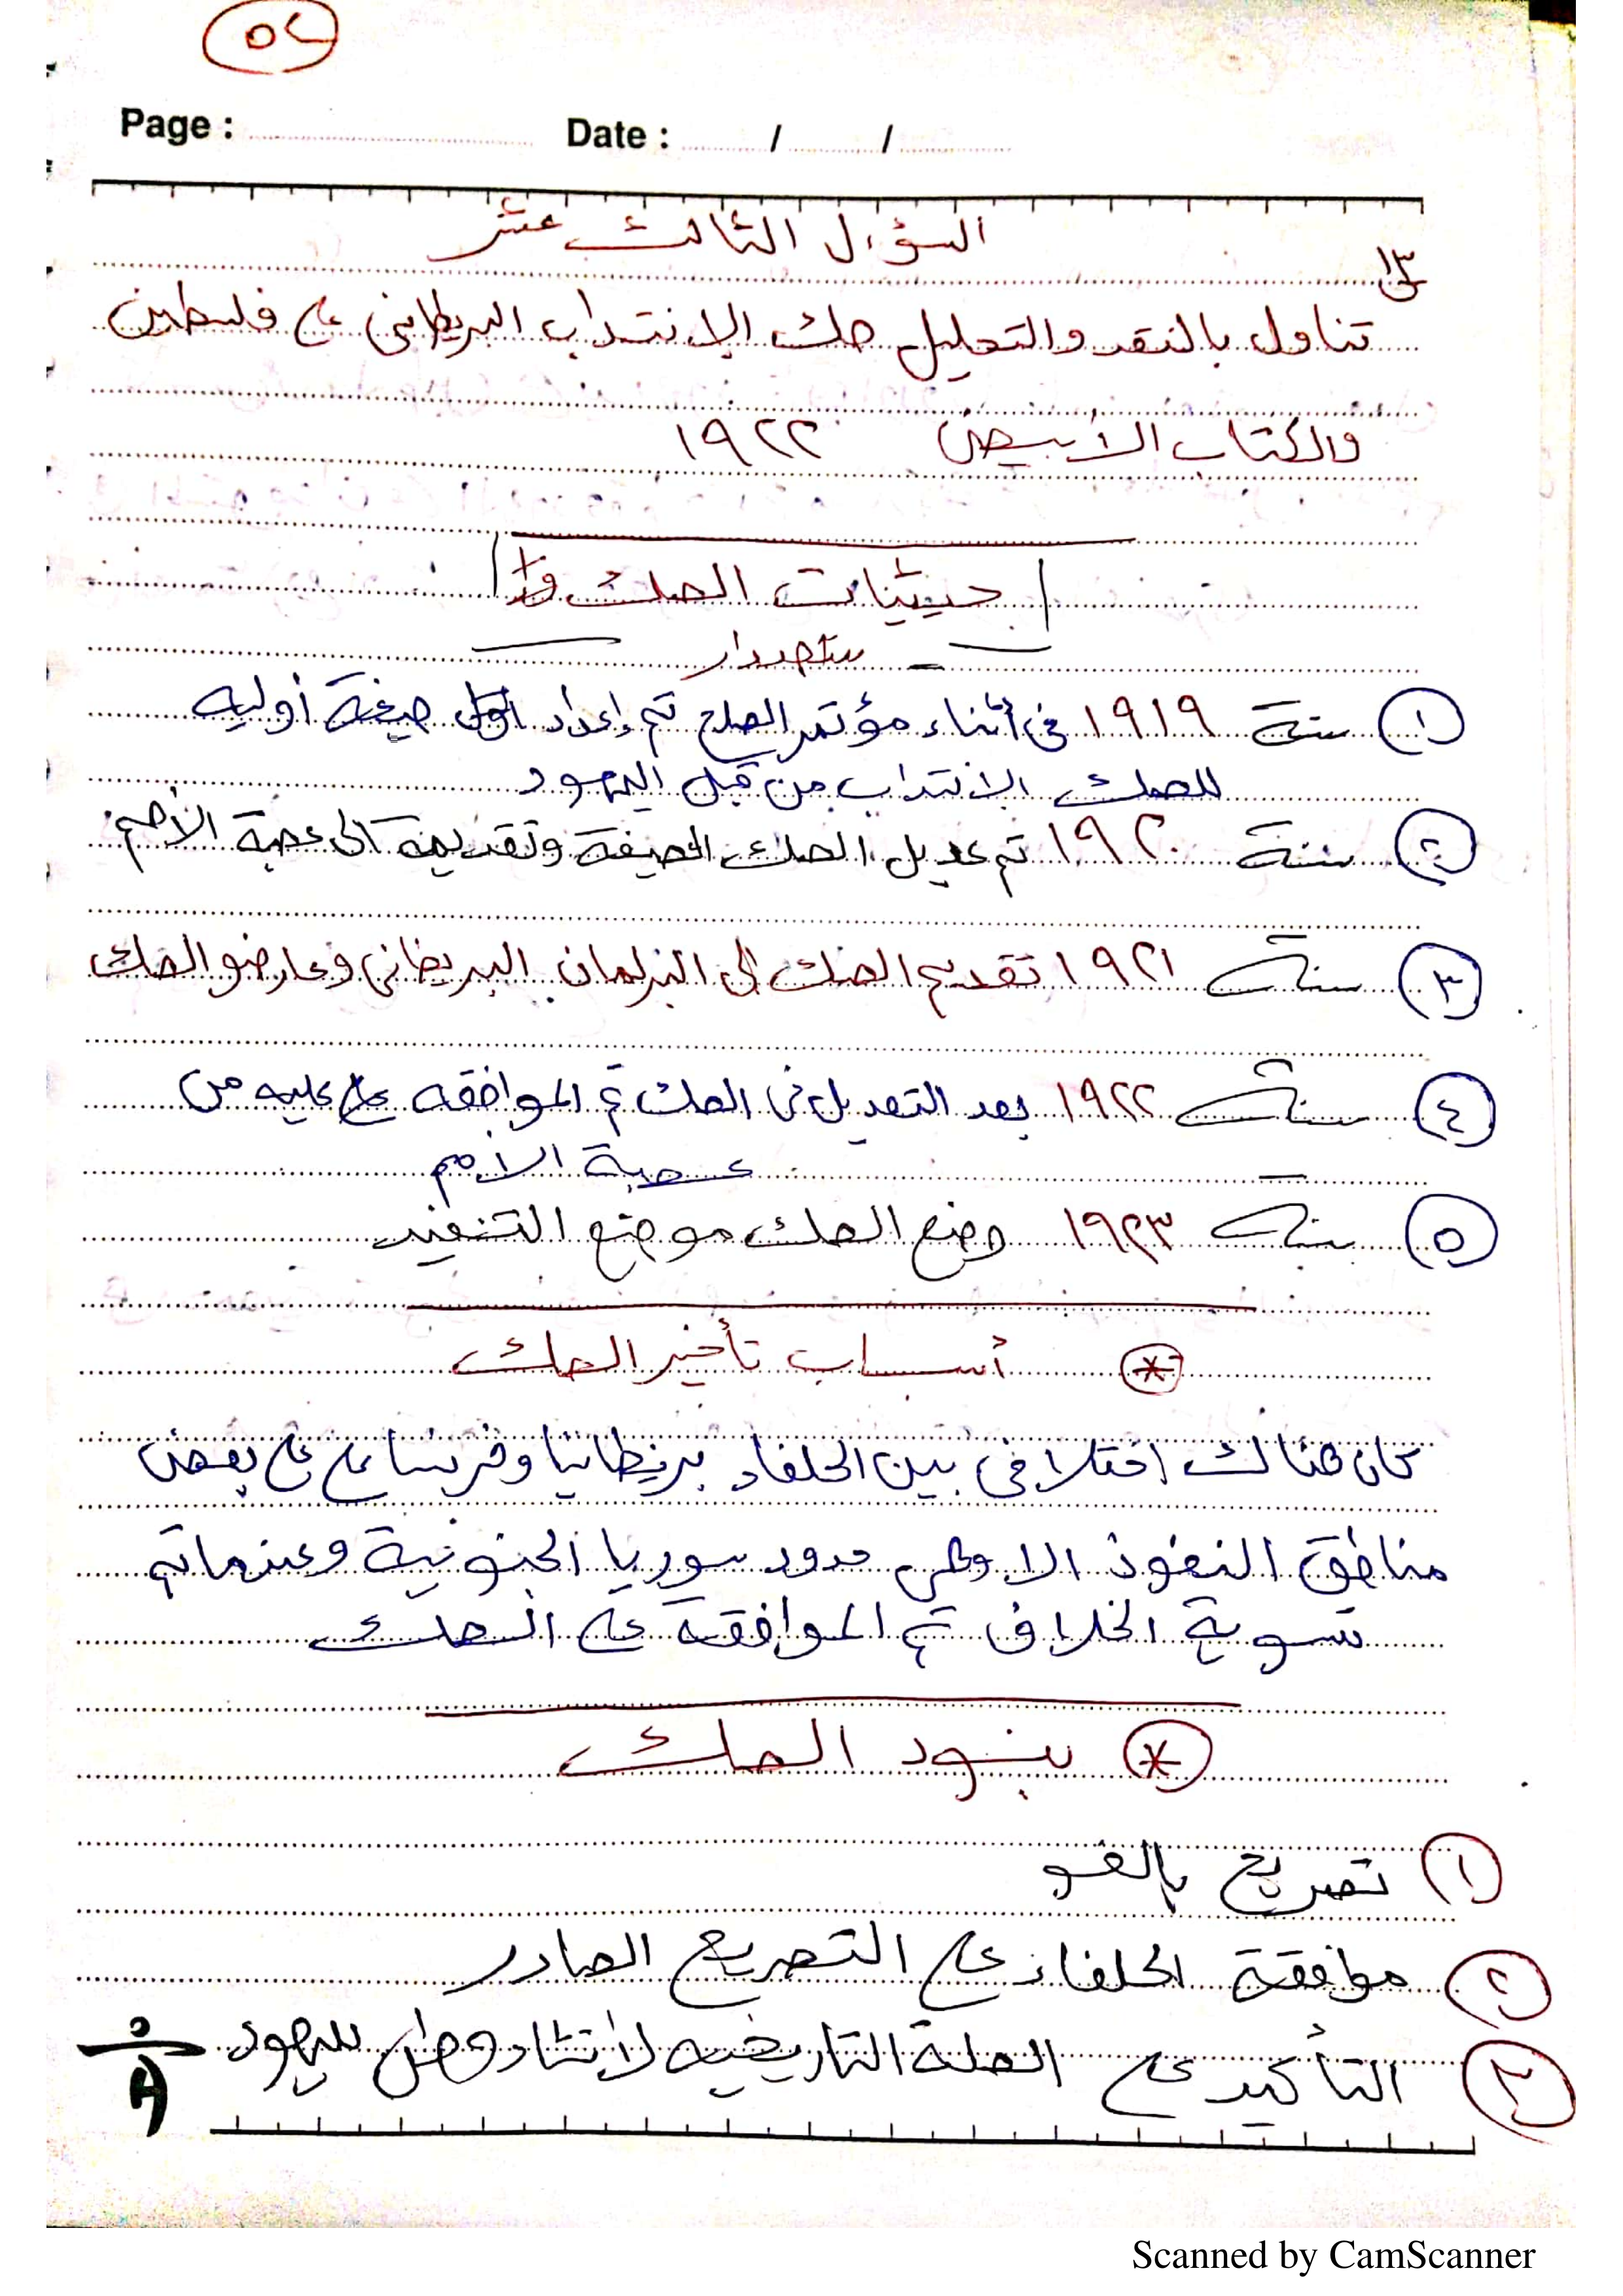 ٥٢
Page : Date : / /
السؤال الثالث عشر
س١٣
تناول بالنقد والتحليل صك الانتداب البريطانى على فلسطين
والكتاب الأبيض ١٩٢٢
حيثيات الصك
ستصدار
١ سنة ١٩١٩ فى أثناء مؤتمر الصلح تم إعداد صيغة أوليه
للصك الانتداب من قبل اليهود
٢ سنة ١٩٢٠ تم عديل الصك الصيغة وتقديمة الى عصبة الأمم
٣ سنة ١٩٢١ تقديم الصك الى البرلمان البريطانى وعارضو الصك
٤ سنة ١٩٢٢ بعد التعديل فى الصك تم الموافقه عليه من
عصبة الامم
٥ سنة ١٩٢٣ وضع الصك موضع التنفيذ
* أسباب تأخير الصك
كان هناك اختلاف بين الحلفاء بريطانيا وفرنسا على على بعض
مناطق النفوذ حدود سوريا الجنوبية وعندما تم
تسوية الخلاف تم الموافقة على الصك
* بنود الصك
١ تصريح بالفو
٢ موافقة الحلفاء على التصريح الصادر
٣ التأكيد على الصلة التاريخيه لأنشاء وطن لليهود
Scanned by CamScanner